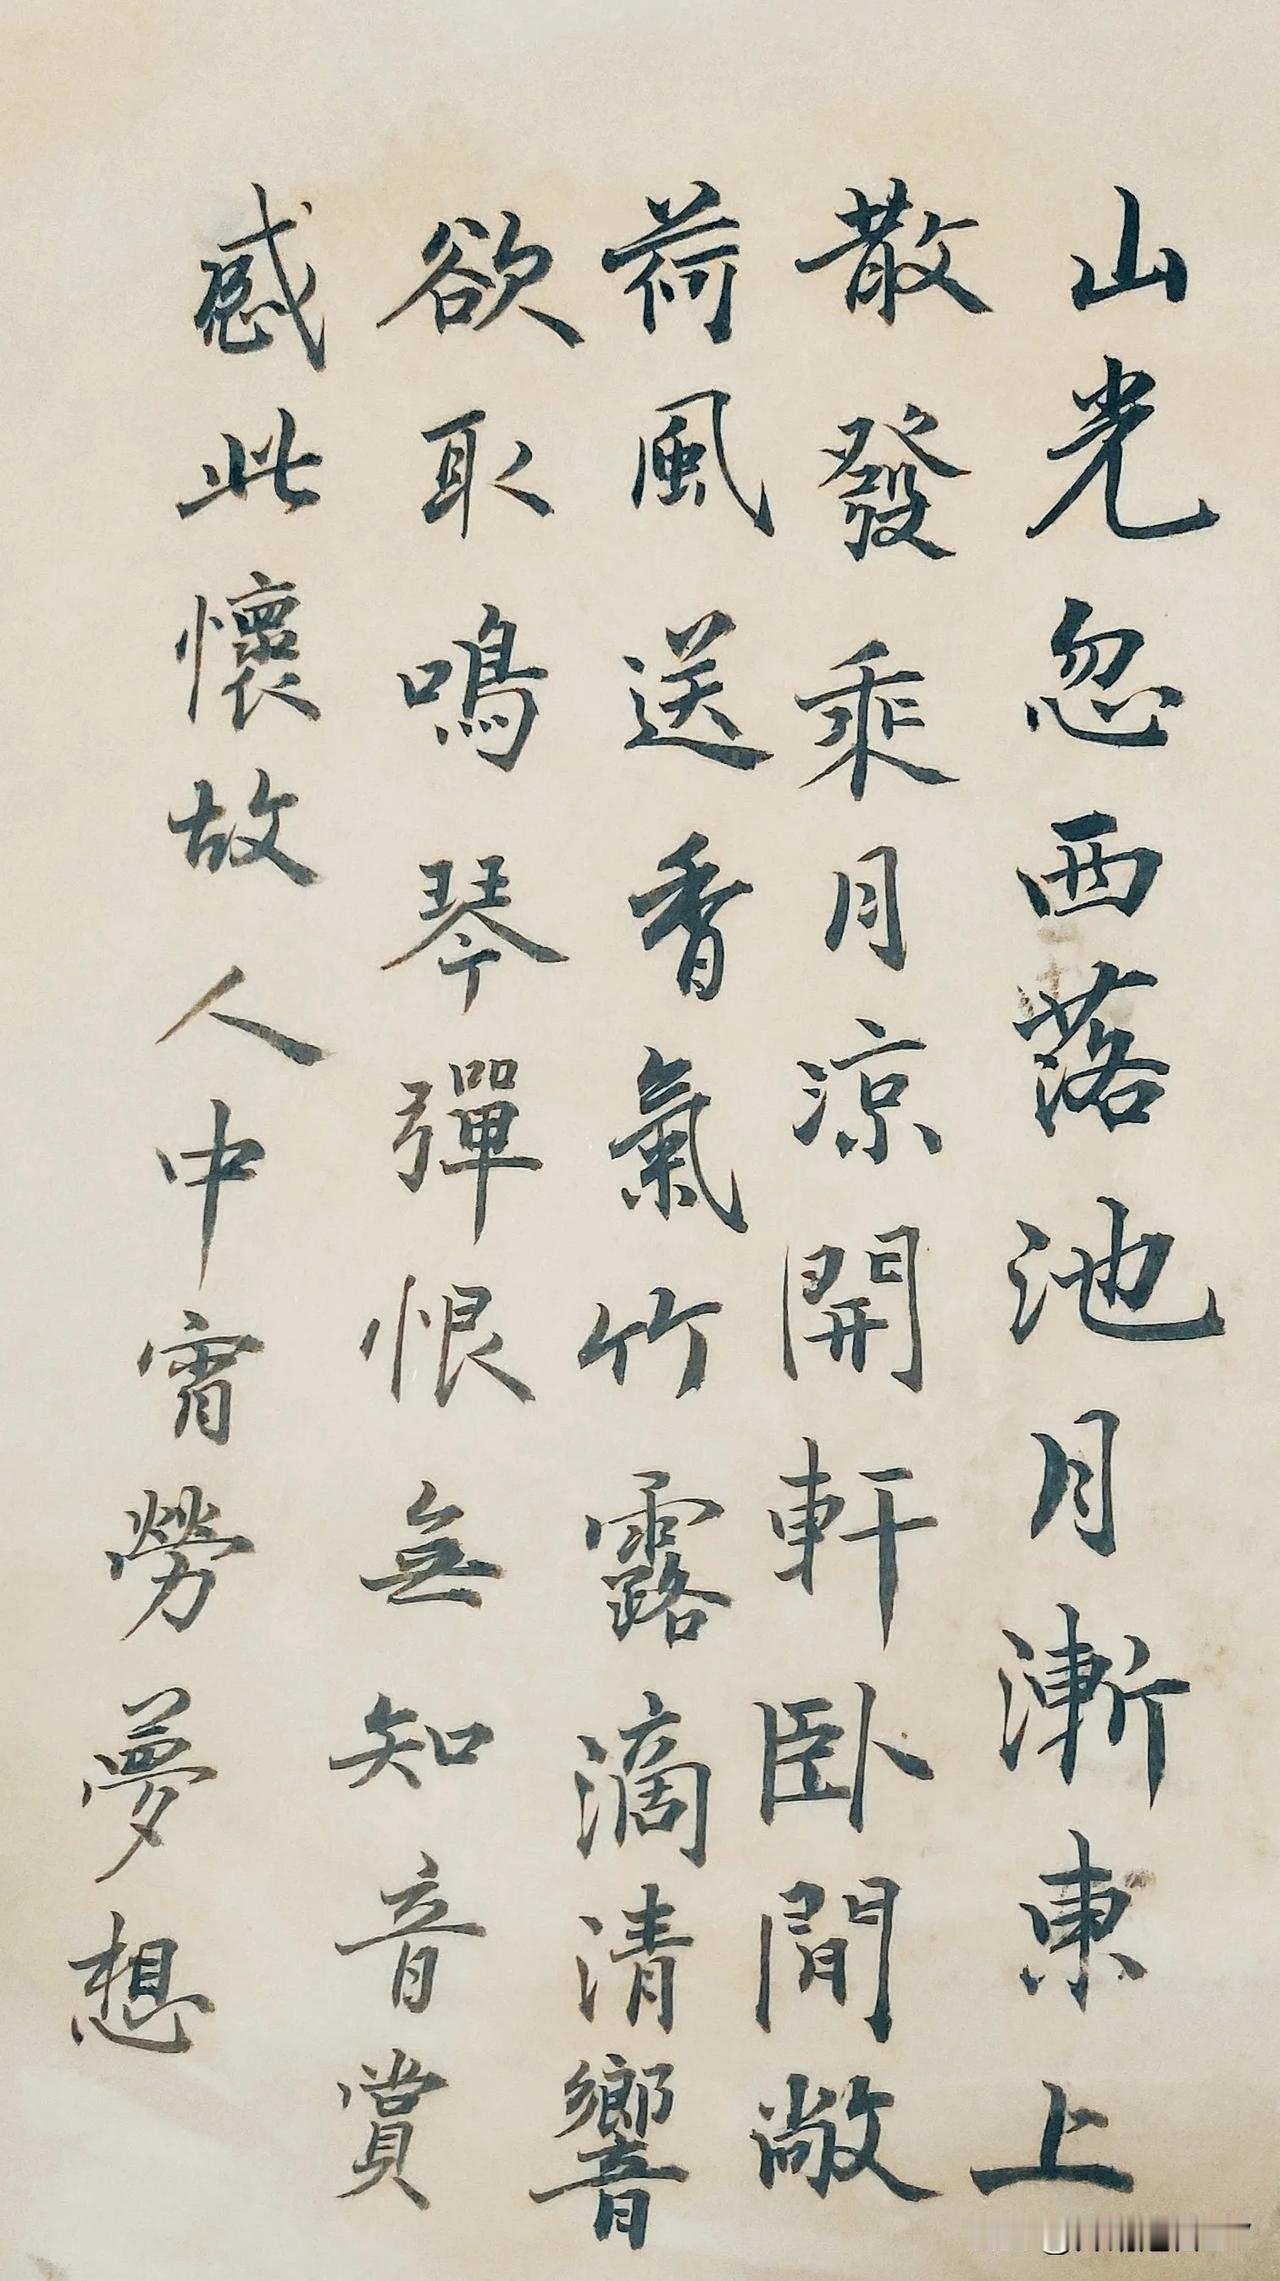 山光忽西落池月漸東上
散發乘月涼開軒卧閒敞
荷風送香氣竹露滴清響
欲取鳴琴彈恨無知音賞
感此懷故人中宵勞夢想